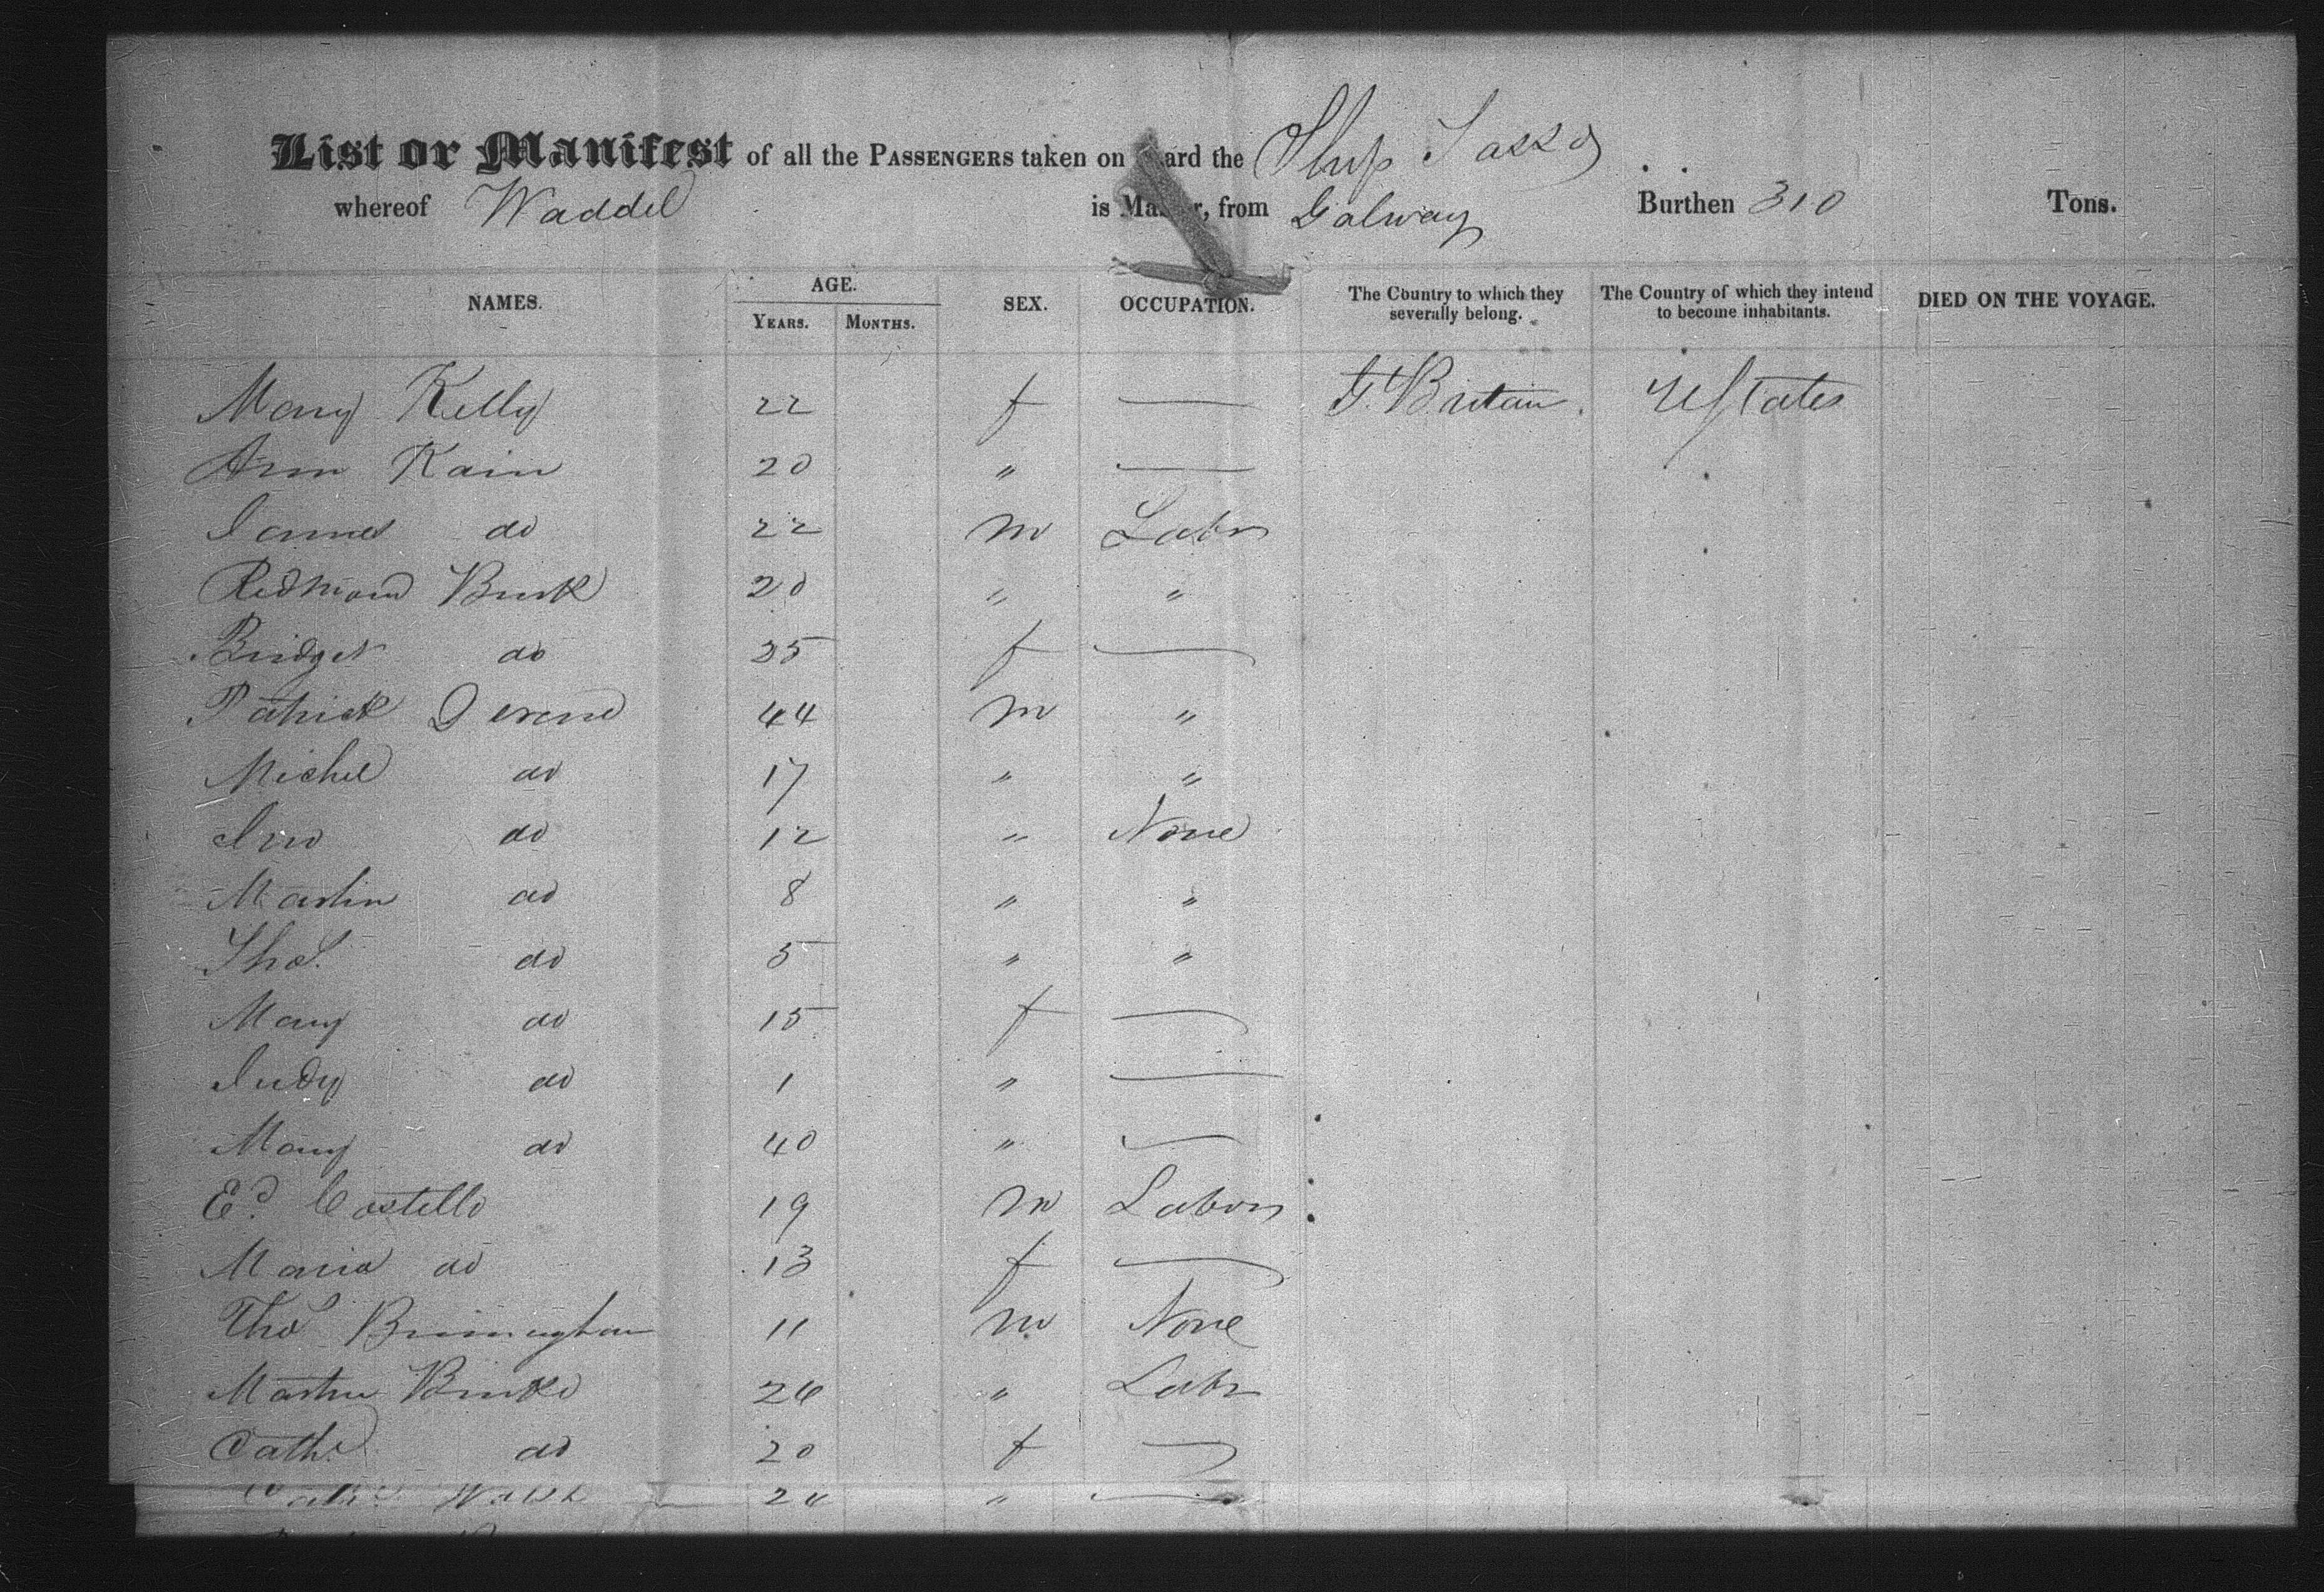 List or Manifest of all the PASSENGERS taken on board the Ship Tasso
whereof Waddel is Master, from Galway Burthen 310 Tons.
NAMES. AGE. SEX. OCCUPATION. The Country to which they severally belong. The Country of which they intend to become inhabitants. DIED ON THE VOYAGE.
YEARS. MONTHS.
Mary Kelly 22 f — G. Britain. U States
Ann Kain 20 " —
James do 22 m Labr
Redmond Burk 20 " "
Bridget do 25 f —
Patrick 44 m "
Michel do 17 " "
Jno do 12 " None
Martin do 8 " "
Thos. do 5 " "
Mary do 15 f —
Judy do 1 " —
Mary do 40 " —
Ed. Costello 19 m Labor
Maria do 13 f —
Thos Birmingham 11 m None
Martin Burke 26 " Labr
Cathe do 20 f —
Walsh " —